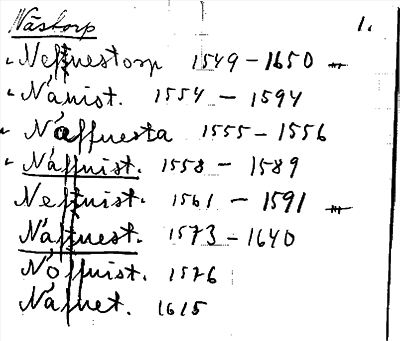 Nästorp 1.
Neffnestorp 1549-1650
Nánist. 1554 - 1594
Náffnesta 1555-1556
Náffnist. 1558 - 1589
Neffnist. 1561 - 1591
Náffnest. 1573-1640
Nóffnist. 1576
Náfnet. 1615